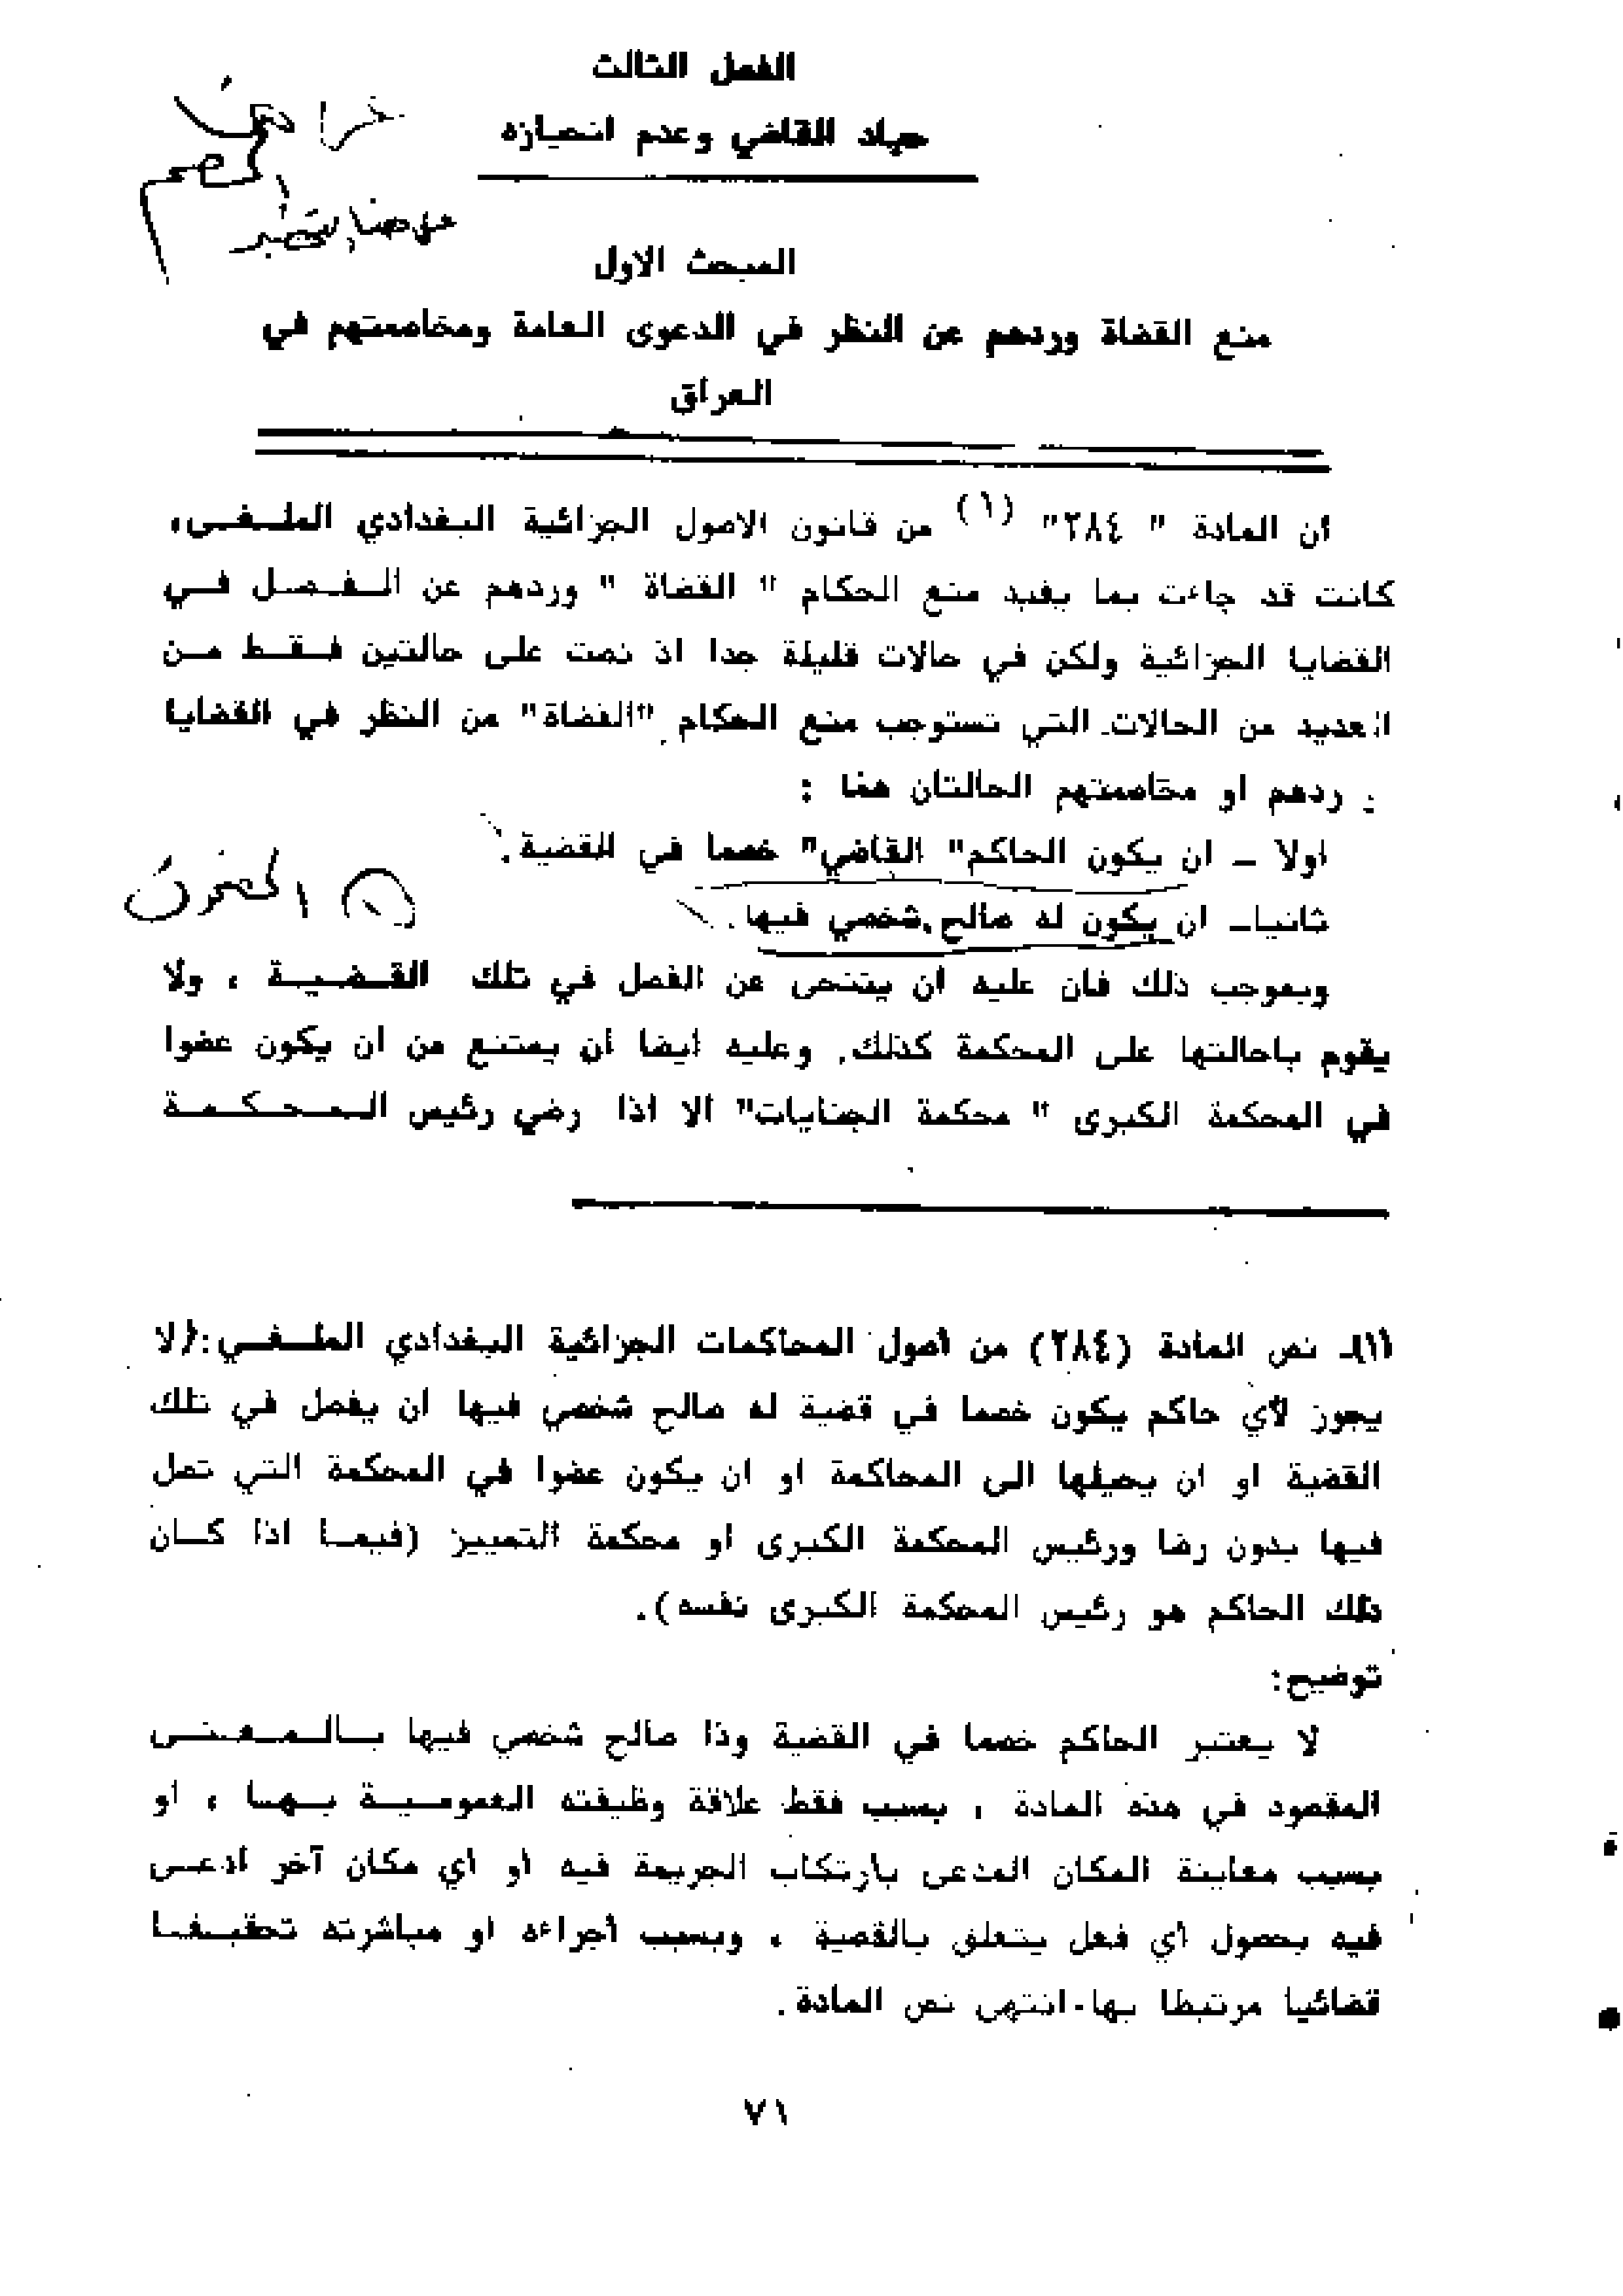 الفصل الثالث
حياد القاضي وعدم انحيازه
المبحث الاول
منع القضاة وردهم عن النظر في الدعوى العامة ومخاصمتهم في
العراق
ان المادة " ٢٨٤" (١) من قانون الاصول الجزائية البغدادي الملـغـى،
كانت قد جاءت بما يفيد منع الحكام " القضاة " وردهم عن الـفـصـل فـي
القضايا الجزائية ولكن في حالات قليلة جدا اذ نصت على حالتين فـقـط مـن
العديد من الحالات التي تستوجب منع الحكام "القضاة" من النظر في القضايا
و ردهم او مخاصمتهم الحالتان هما :
اولا ـ ان يكون الحاكم" القاضي" خصما في القضية.
ثانياـ ان يكون له صالح شخصي فيها.
وبموجب ذلك فان عليه ان يتنحى عن الفصل في تلك القـضـيـة ، ولا
يقوم باحالتها على المحكمة كذلك. وعليه ايضا ان يمتنع من ان يكون عضوا
في المحكمة الكبرى " محكمة الجنايات" الا اذا رضي رئيس الـمـحـكـمـة
(١)ـ نص المادة (٢٨٤) من اصول المحاكمات الجزائية البغدادي الملـغـي:(لا
يجوز لأي حاكم يكون خصما في قضية له صالح شخصي فيها ان يفصل في تلك
القضية او ان يحيلها الى المحاكمة او ان يكون عضوا في المحكمة التي تصل
فيها بدون رضا ورئيس المحكمة الكبرى او محكمة التمييز (فيمـا اذا كـان
ذلك الحاكم هو رئيس المحكمة الكبرى نفسه).
توضيح:
لا يعتبر الحاكم خصما في القضية وذا صالح شخصي فيها بـالـمـعـنـى
المقصود في هذه المادة ، بسبب فقط علاقة وظيفته العموميـة بـهـا ، او
بسبب معاينة المكان المدعى بارتكاب الجريمة فيه او اي مكان آخر ادعـى
فيه بحصول اي فعل يتعلق بالقضية ، وبسبب اجراءه او مباشرته تحقيـقـا
قضائيا مرتبطا بها-انتهى نص المادة.
٧١